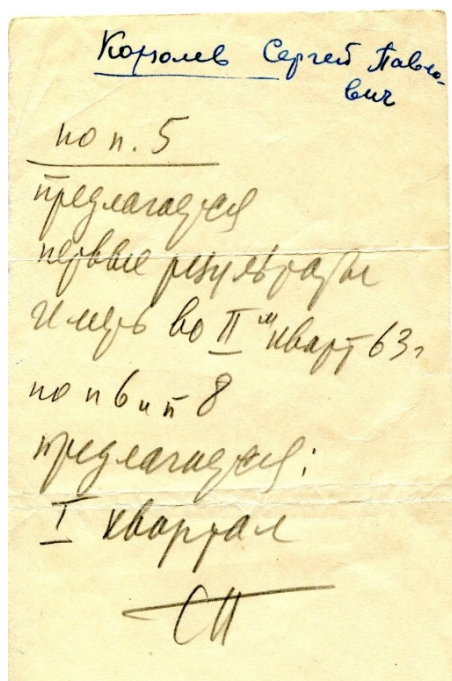 Королев Сергей Павло-
вич
по п. 5
предлагается
первые результаты
иметь во IIм кварт 63г
по п 6 и п 8
предлагается:
I квартал
СП